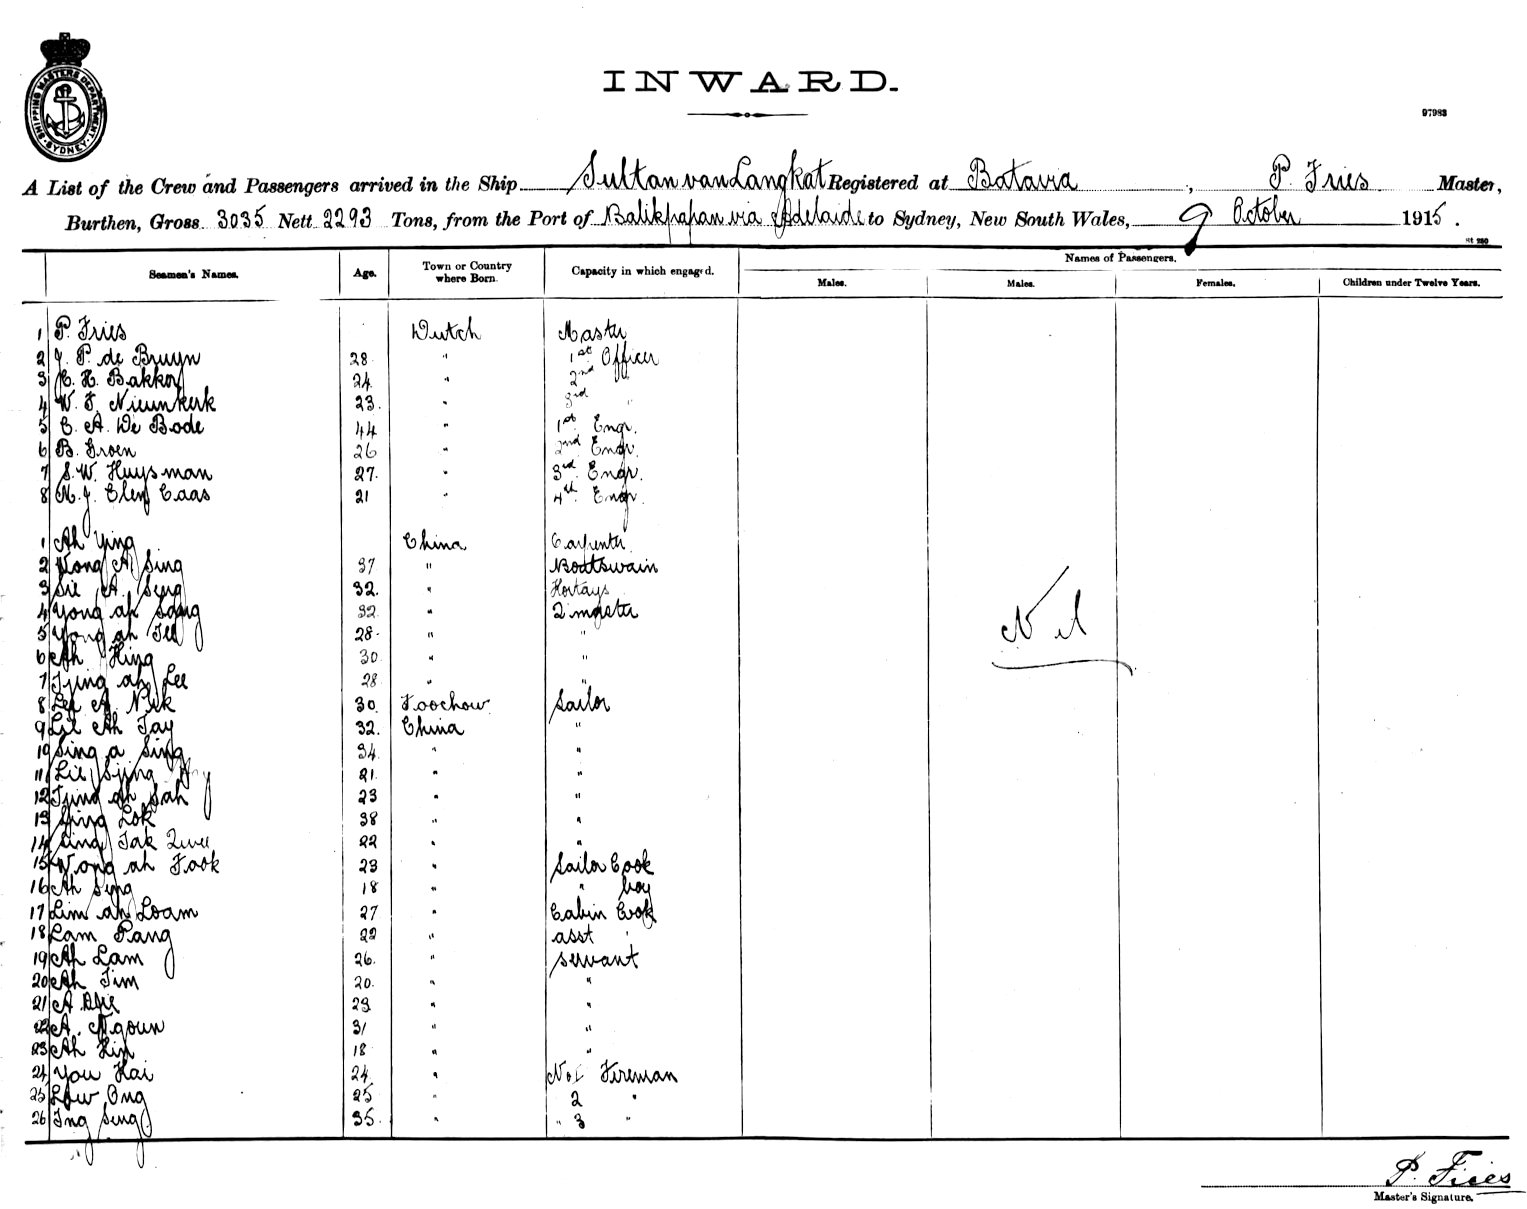 SHIPPING MASTERS DEPARTMENT SYDNEY
INWARD.
97983
A List of the Crew and Passengers arrived in the Ship Sultan van Langkat Registered at Batavia, P. Fries Master,
Burthen, Gross 3035 Nett 2293 Tons, from the Port of Balikpapan via Adelaide to Sydney, New South Wales, 9 October 1915.
Names of Passengers.
Seamen's Names. Age. Town or Country where Born. Capacity in which engaged. Males. Males. Females. Children under Twelve Years.
1 P. Fries Dutch Master
2 J. P. de Bruyn 28 " 1st Officer
3 C. H. Bakker 24 " 2nd "
4 W. F. Nieunkerk 23 " 3rd "
5 C. A. De Bode 44 " 1st Engr.
6 B. Groen 26 " 2nd Engr.
7 S. W. Huysman 27 " 3rd Engr.
8 M. J. Clay Caas 21 " 4th Engr.
1 Ah Ying China Carpenter
2 Wong A Sing 37 " Boatswain
3 Sie A. Seng 32 "
4 Yong ah Sang 32 " 2 master
5 Yong ah Tee 28 " "
6 Ah Hing 30 " "
7 Tjing ah Lee 28 " "
8 Lee A Nek 30 Foochow Sailor
9 Lie Ah Tay 32 China "
10 Sing a Sing 34 " "
11 Lie Sjing 21 " "
12 Tjing ah Sah 23 " "
13 Sjing Lok 38 " "
14 Tak 22 " "
15 Wong ah Fook 23 " Sailor Cook
16 Ah Seng 18 " " boy
17 Lim ah Loam 27 " Cabin Cook
18 Lam Pang 22 " asst "
19 Ah Lam 26 " servant
20 Ah Tim 20 " "
21 A 23 " "
22 A. Ngoun 31 " "
23 Ah Kin 18 " "
24 You Hai 24 " No 1 Fireman
25 Low Ong 25 " 2 "
26 Ing Seng 35 " " 3 "
Nil
P. Fries
Master's Signature.